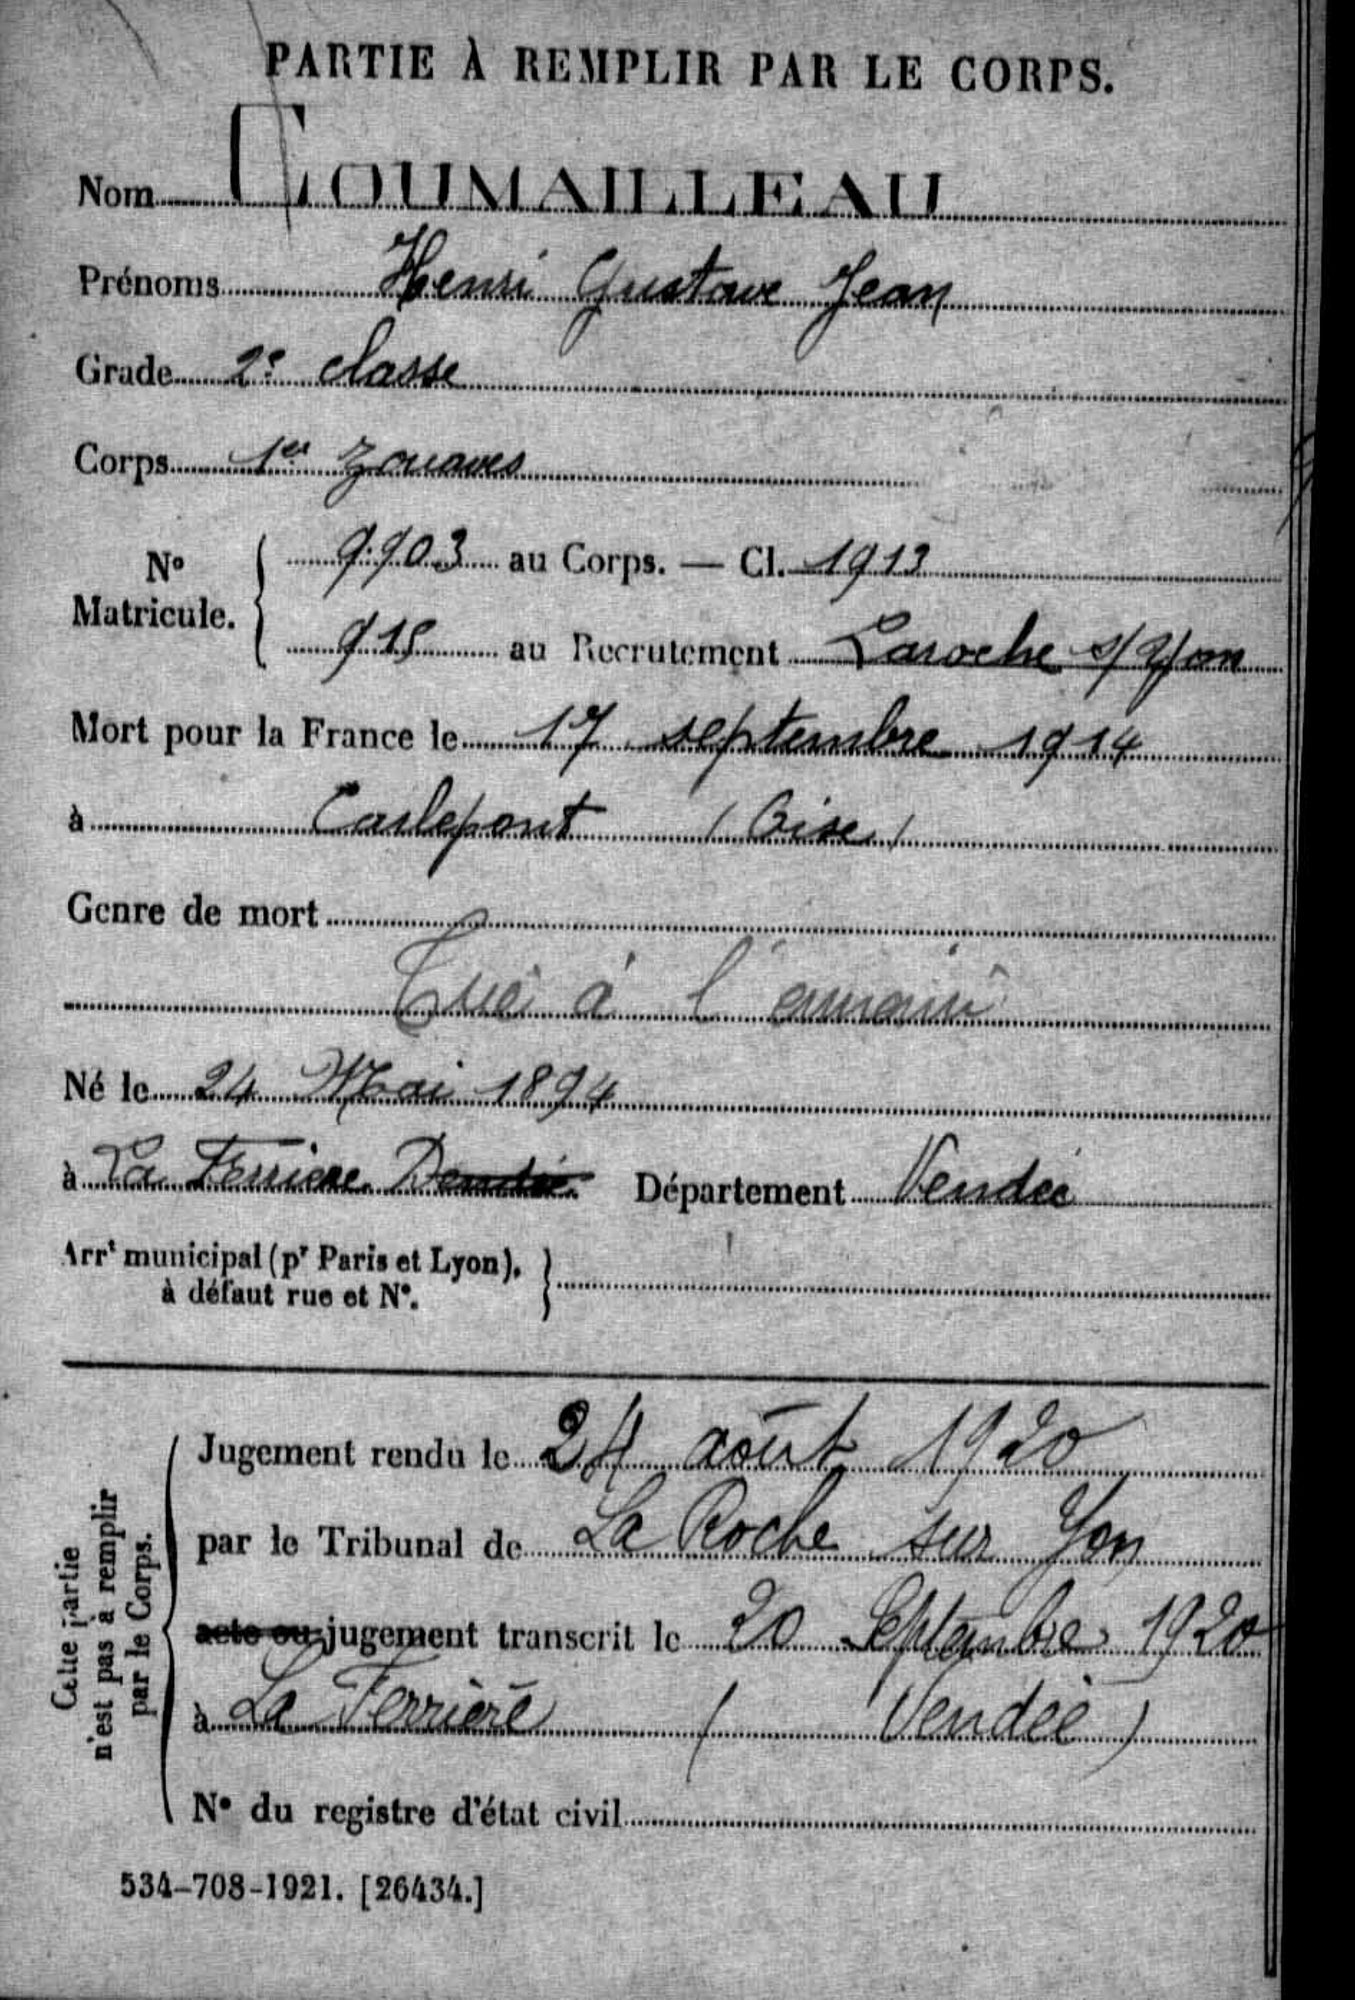 PARTIE À REMPLIR PAR LE CORPS.
Nom GOUMAILLEAU
Prénoms Henri Gustave Jean
Grade 2e classe
Corps 1er zouaves
No Matricule. 9.903 au Corps. — Cl. 1913
915 au Recrutement Laroche s/Yon
Mort pour la France le 17 septembre 1914
à Carlepont (Oise)
Genre de mort
Tué à l'ennemi
Né le 24 Mai 1894
à La Ferrière Vendée Département Vendée
Arrt municipal (pr Paris et Lyon),
à défaut rue et No.
Cette partie
n'est pas à remplir
par le Corps.
Jugement rendu le 24 août 1920
par le Tribunal de La Roche sur Yon
acte ou jugement transcrit le 20 Septembre 1920
à La Ferrière (Vendée)
No du registre d'état civil
534-708-1921. [26434.]